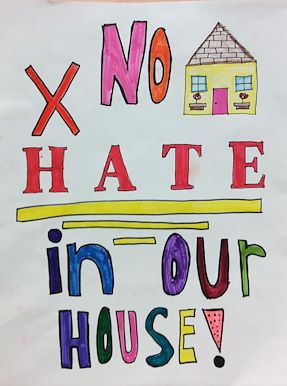 NO
X HATE
in our
HOUSE!